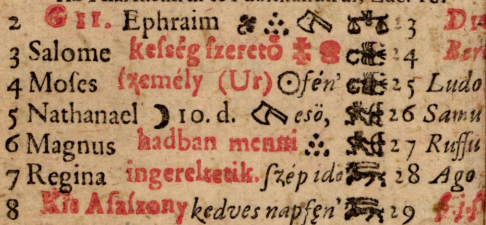 2 G 11. Ephraim 23
3 Salome kesség szerető 24
4 Moses személy (Ur) ʘ fén' 25 Ludo
5 Nathanael ☽ 10. d. esö, 26 Samu
6 Magnus hadban menni 27 Ruffu
7 Regina ingereltetik. szép idö 28 Ago
8 Kis Aszszony kedves napfęn' 29